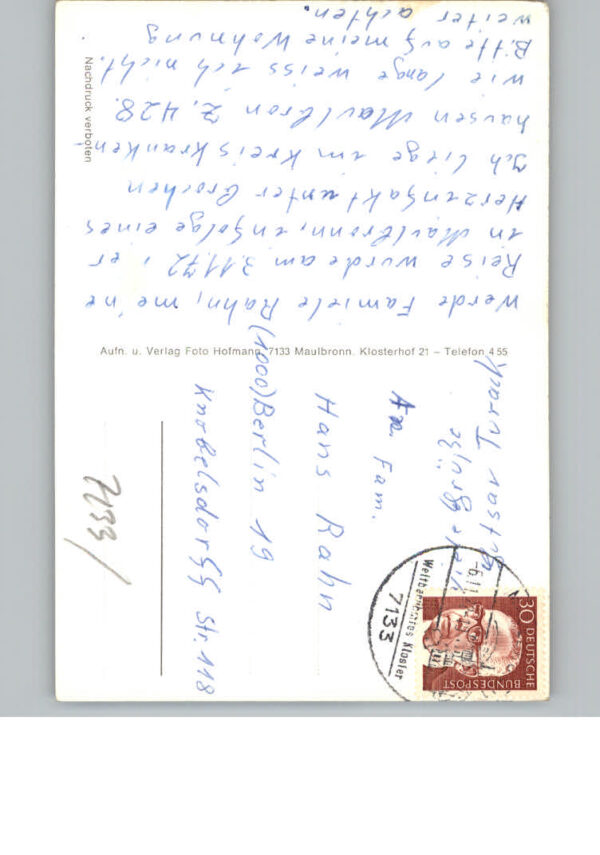 Werde Famiele Rahn, meine
Reise wurde am 3.11.72 in er
in Maulbronn, infolge eines
Herzinfakt unter brochen
Ich liege im Kreis kranken
hausen Maulbron Z. 428.
wie lange weiss ich nicht.
Bitte auf meine Wohnung
weiter achten.
Viele Grüße
Gustav
Nachdruck verboten
Aufn. u. Verlag Foto Hofmann, 7133 Maulbronn. Klosterhof 21 – Telefon 4 55
An Fam.
Hans Rahn
(1000) Berlin 19
Knobelsdorff Str. 118
7133/
30
DEUTSCHE
BUNDESPOST
-6.11.
Weltberühmtes Kloster
7133